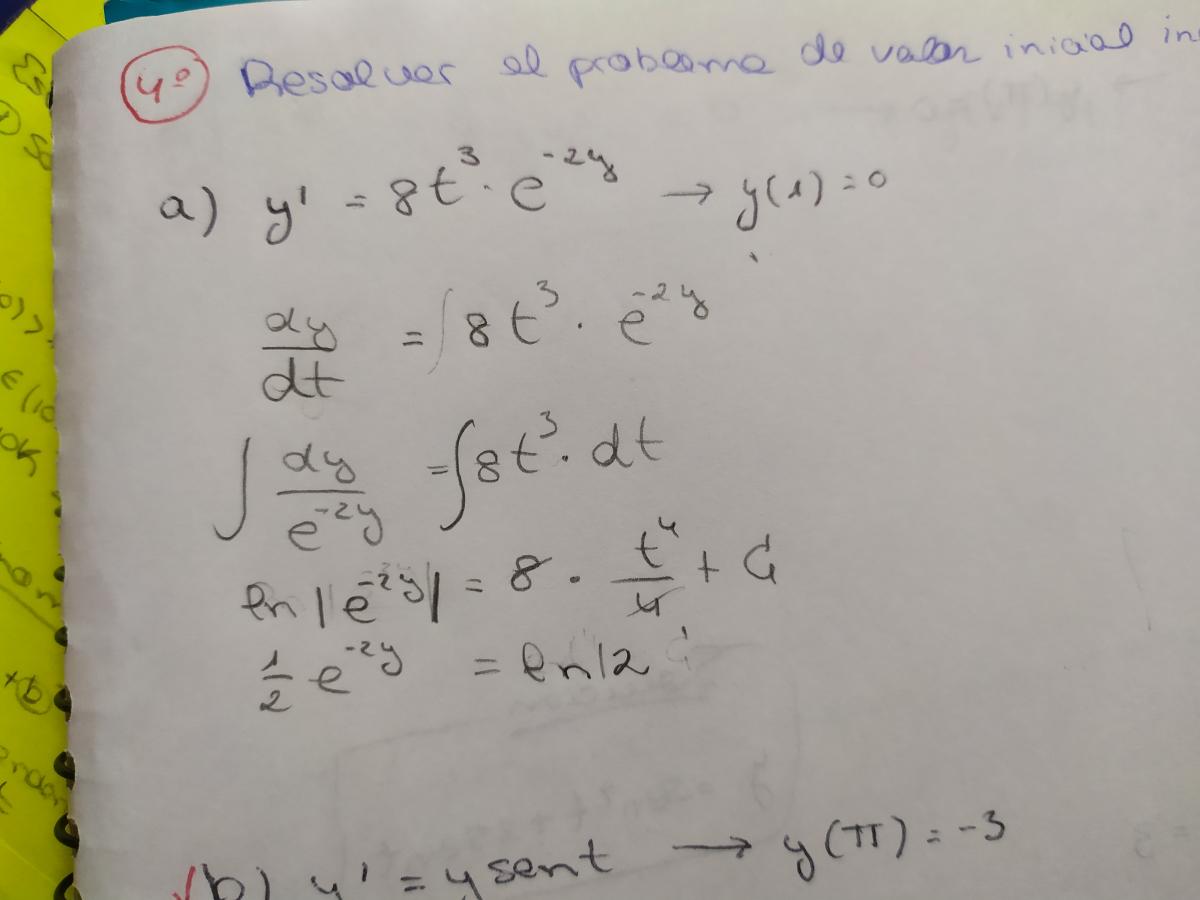 4º Resolver el problema de valor inicial
a) y' = 8t³ · e⁻²ʸ → y(1) = 0
dy/dt = ∫ 8t³ · e⁻²ʸ
∫ dy/e⁻²ʸ = ∫ 8t³ · dt
ln |e⁻²ʸ| = 8 · t⁴/4 + C₁
1/2 e⁻²ʸ = ln|2
b) y' = y sent → y(π) = -3